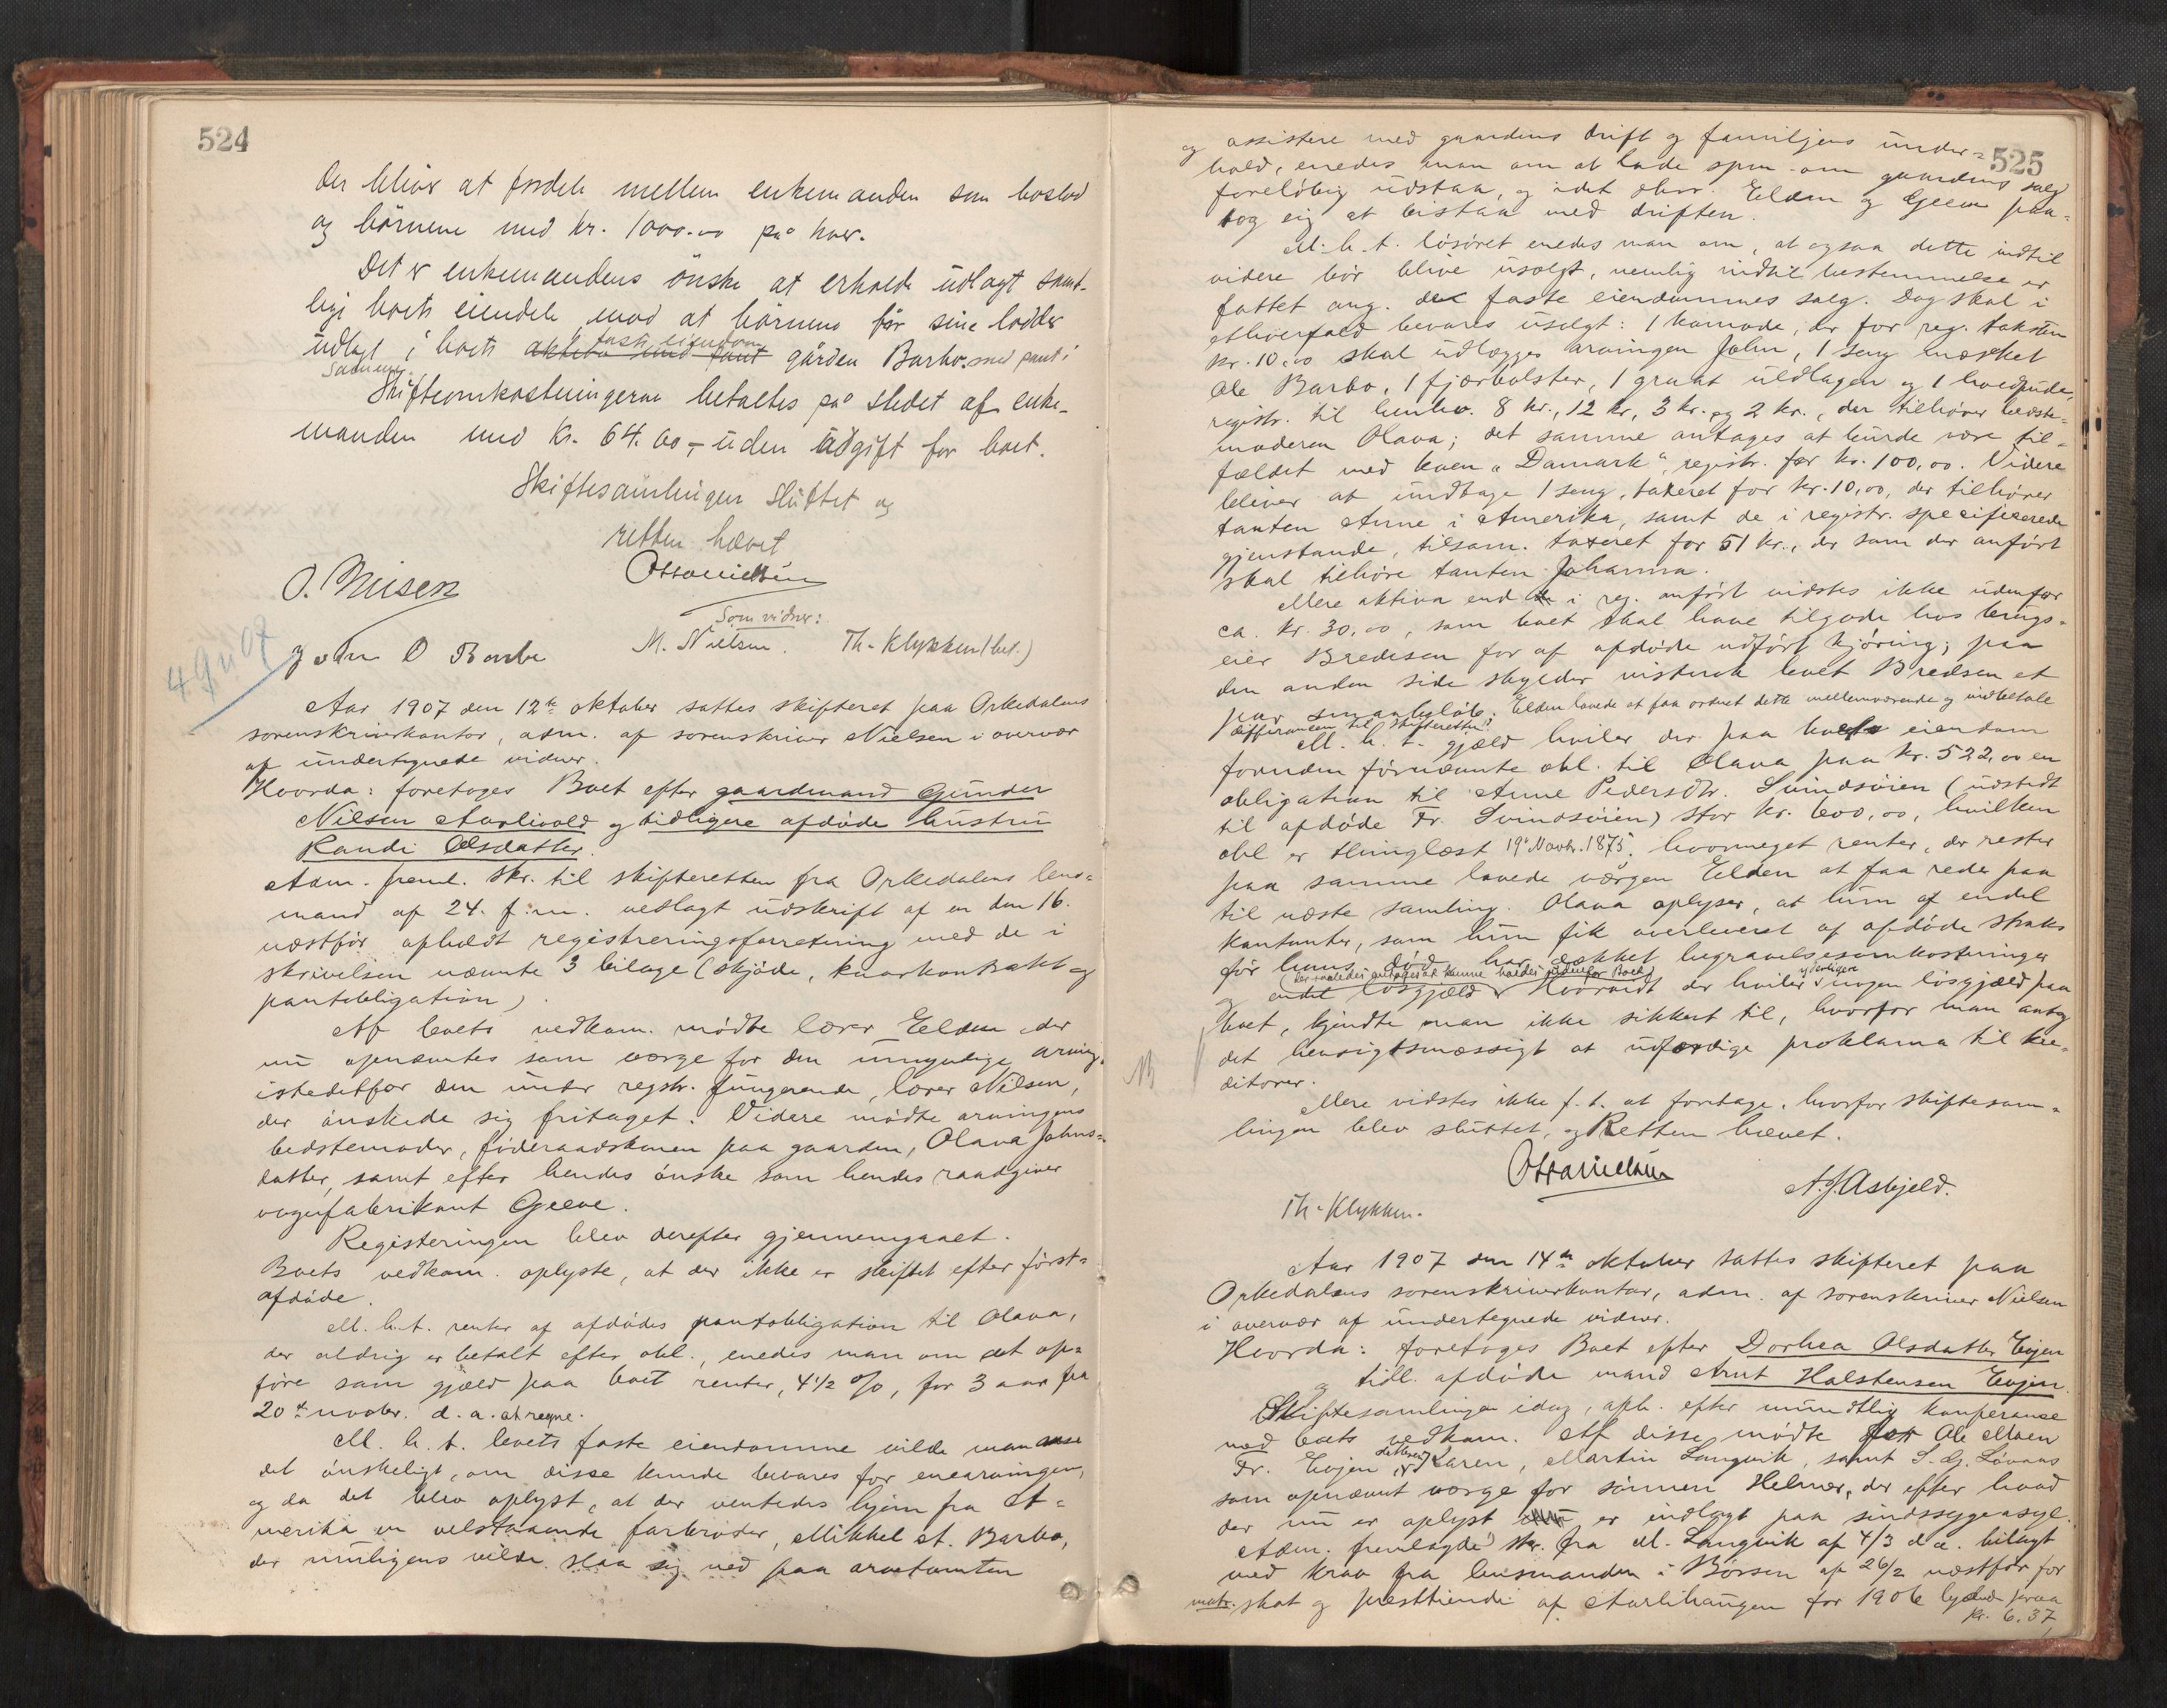 524
der bliver at fordele mellem enkemanden som boslod
og börnene med kr. 1000.00 på hver.
Det er enkemandens önske at erholde udlagt samt-
lige boets eiendele mod at börnene får sine lodder
udlagt i boets aktiva med pant fast eiendom gården Barbo. med pant i
samme.
Skifteomkostningerne betaltes på stedet af enke-
manden med kr. 64.60 - uden udgift for boet.
Skiftesamlingen sluttet og
retten hævet
Otto Nielsen
O. Nilsen
Som vidner:
John O Barbo
M. Nielsen. Th. Klykken (bet.)
Aar 1907 den 12te oktober sattes skifteret paa Orkedalens
sorenskriverkontor, adm. af sorenskriver Nielsen i overvær
af undertegnede vidner.
Hvorda: foretoges Boet efter gaardmand Gunder
Nilsen Aarlivold og tidligere afdøde hustru
Randi Olsdatter.
Adm. freml. skr. til skifteretten fra Orkedalens lens-
mand af 24. f.m. vedlagt udskrift af en den 16.
næstfør afholdt registreringsforretning med de i
skrivelsen nævnte 3 bilage (skjøde, kaarkontrakt og
pantobligation).
Af boets vedkom. mødte lærer Eldem der
nu opnævntes som værge for den umyndige arving,
istedetfor den under registr. fungerende, lærer Nilsen,
der ønskede sig fritaget. Videre mødte arvingens
bedstemoder, føderaadskonen paa gaarden, Olava Johns-
datter, samt efter hendes ønske som hendes raadgiver
vognfabrikant Geeve.
Registeringen blev derefter gjennemgaaet.
Boets vedkom. oplyste, at der ikke er skiftet efter først-
afdøde.
M. h. t. renter af afdødes pantobligation til Olava,
der aldrig er betalt efter obl., enedes man om at op-
føre som gjæld paa boet renter, 4½ %, for 3 aar fra
20de novbr. d. a. at regne.
M. h. t. boets faste eiendomme vilde man anse
det ønskeligt, om disse kunde bevares for enearvingen,
og da det blev oplyst, at der ventedes hjem fra A-
merika en velstaaende farbroder, Mikkel A. Barbo,
der muligens vilde slaa sig ned paa arvetomten
525
og assistere med gaardens drift og familjens under-
hold, enedes man om at lade spm. om gaardens salg
foreløbig udstaa, og idet ohv. Eldem og Geeve paa-
tog sig at bistaa med driften.
M. h. t. løsøret enedes man om, at ogsaa dette indtil
videre bør blive usolgt, nemlig indtil bestemmelse er
fattet ang. den faste eiendommes salg. Dog skal i
ethverfald bevares usolgt: 1 komode, der for reg. taksten
kr. 10.00 skal udlægges arvingen John, 1 seng mærket
Ole Barbo, 1 fjærbolster, 1 graat uldlagen og 1 hovedpude,
registr. til henhv. 8 kr., 12 kr, 3 kr. og 2 kr., der tilhører bedste-
moderen Olava; det samme antages at burde være til-
fældet med koen "Damark", registr. for kr. 100,00. Videre
bliver at undtage 1 seng, taxeret for kr. 10,00, der tilhører
tanten Anne i Amerika, samt de i registr. specificerede
gjenstande, tilsam. taxeret for 51 kr., der som der anført
skal tilhøre tanten Johanna.
Mere aktiva end de i reg. anført vidstes ikke udenfor
ca. kr. 30,00, som boet skal have tilgode hos brugs-
eier Bredesen for af afdøde udført kjøring; paa
den anden side skylder vistnok boet Bredesen et
par smaabeløb. Elden lovede at faa ordnet dette mellemværende og indbetale
differancen til skifteretten.
M. h. t. gjæld hviler der paa boets eiendom
foruden førnævnte obl. til Olava paa kr. 522,00 en
obligation til Anne Pedersdtr. Svindsøien (udstedt
til afdøde Fr. Svindsøien) stor kr. 600,00, hvilken
obl er thinglæst 19de Novbr. 1875. hvormeget renter, der rester
paa samme lovede værgen Elden at faa rede paa
til næste samling. Olava oplyser, at hun af endel
kontanter, som hun fik overleveret af afdøde straks
før hans død, har dækket begravelsesomkostninger
(der saaledes antages at kunne holdes udenfor Boet)
og endel løsgjæld. Hvorvidt der hviler yderligere nogen løsgjæld paa
boet, kjendte man ikke sikkert til, hvorfor man antog
det hensigtsmæssigt at udfærdige proklama til kre-
ditorer.
Mere vidstes ikke f. t. at foretage, hvorfor skiftesam-
lingen blev sluttet, og Retten hævet.
Otto Nielsen
A. J. Asbjeld.
Th. Klykken.
Aar 1907 den 14de oktober sattes skifteret paa
Orkedalens sorenskriverkontor, adm. af sorenskriver Nielsen
i overvær af undertegnede vidner.
Hvorda: foretoges Boet efter Dorhea Olsdatter Evjen
og tidl. afdøde mand Arnt Halstensen Evjen.
Skiftesamlingen idag, aph. efter mundtlig konferanse
med boets vedkom. Af disse mødte Ole Moen
Fr. Evjen Karen, Martin Langvik, samt S. G. Løvaas
som opnævnt værge for sønnen Helmer, der efter hvad
der nu er oplyst er indlagt paa sindssygeasyl.
Adm. fremlagde skr. fra M. Langvik af 4/3 d.a. bilagt
med krav fra lensmanden i Børsen af 26/2 næstfør for
matr. skat og presttiende af Aarlihaugen for 1906 lydende paa
kr. 6.37,